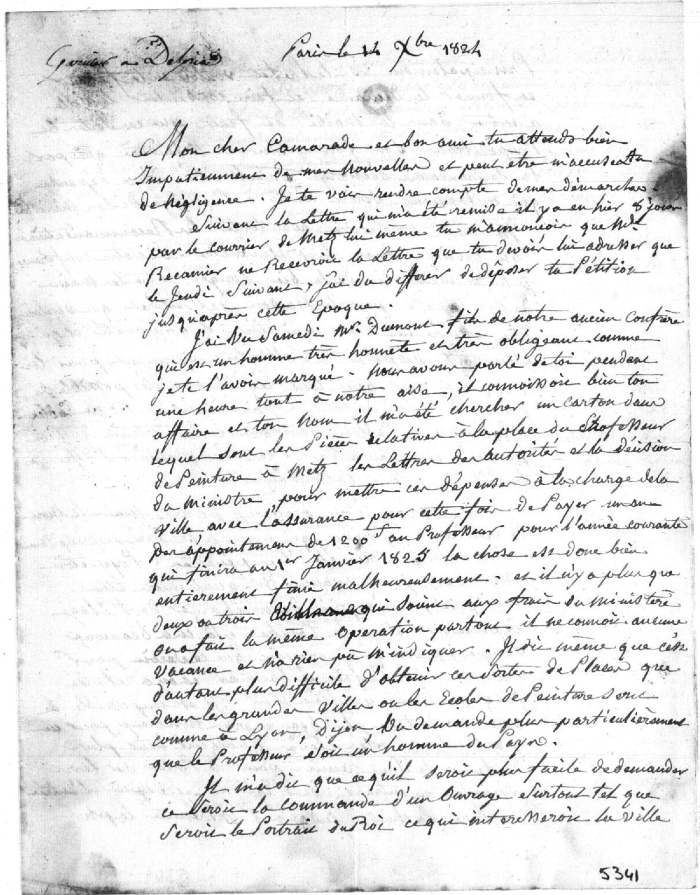 Paris le 14 Xbre 1824
Garnier a
Mon cher Camarade et bon ami tu attends bien
Impatiemment de mes nouvelles et peut être m'accuses tu
de négligence. Je te vais rendre compte de mes démarches.
Suivant la Lettre qui m'a été remise il y a eu hier 8 jours
par le courrier de Metz lui même tu m'annoncois que Mr
Recamier ne Recevroit la Lettre que tu devois lui adresser que
le Jeudi Suivant, j'ai du differer de déposer ta Pétition
jusqu'après cette Epoque.
J'ai Vu Samedi Mr Dumont fils de notre ancien Confrère
qui est un homme très honnete et très obligeant comme
je te l'avois marqué. nous avons parlé de toi pendant
une heure tout à notre aise, il connoissoit bien ton
affaire et ton nom il m'a été chercher un carton dans
lequel sont les Pièces relatives à la place du Professeur
de Peinture à Metz les Lettres des autorités et la décision
du Ministre pour mettre ces dépenses à la charge de la
Ville avec l'assurance pour cette fois de Payer un an
des appointemens de 1200 f au Professeur pour l'année courante
qui finira au 1er Janvier 1825 la chose est donc bien
entierement finie malheureusement. et il n'y a plus que
deux ou trois qui soient aux frais du ministère
on a fait la même opération partout il ne connoit aucune
vacance et n'a rien pu m'indiquer. Il dit même que c'est
d'autant plus difficile d'obtenir ces sortes de Places que
dans les grandes Villes ou les Ecoles de Peinture sont
comme à Lyon, Dijon on demande plus particulièrement
que le Professeur soit un homme du Pays.
Il m'a dit que ce qu'il seroit plus facile de demander
ce seroit la commande d'un Ouvrage surtout tel que
seroit le Portrait du Roi ce qui interesseroit la Ville
5341